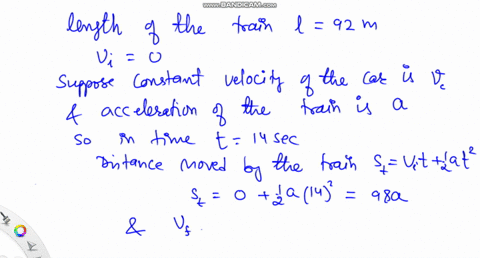 WWW.BANDICAM.COM
length of the train l = 92 m
Vi = 0
Suppose constant velocity of the car is Vc
& acceleration of the train is a
so in time t = 14 sec
Distance moved by the train St = Vit + 1/2 at²
St = 0 + 1/2 a (14)² = 98a
& Vf